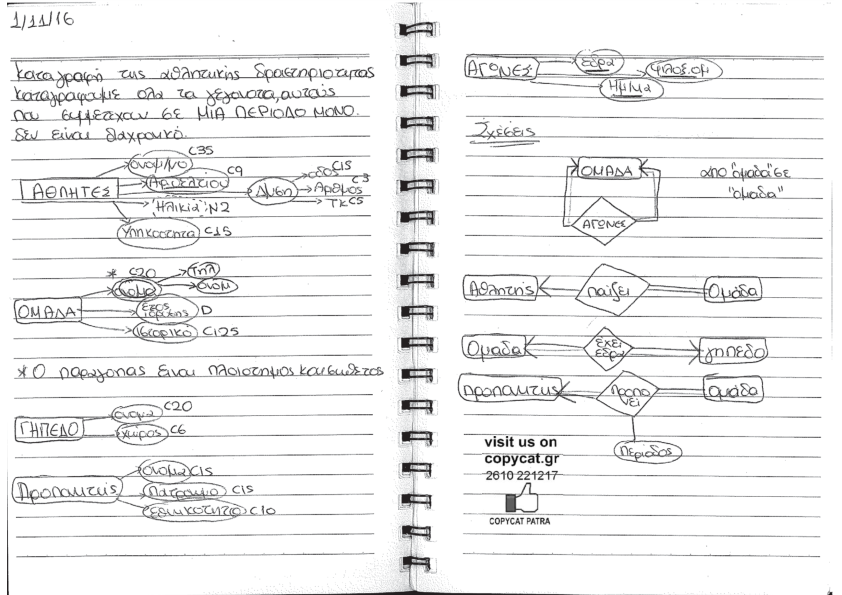 1/11/16
καταγραφή της αθλητικής δραστηριοτητας
καταγράφουμε ολα τα γεγονοτα, αυταις
που συμμετεχουν σε ΜΙΑ ΠΕΡΙΟΔΟ ΜΟΝΟ.
δεν είναι διαχρονικό.
ΑΘΛΗΤΕΣ
ονομ/νο C35
Αρ.δελτιου C9
Δ/νση
οδος C15
Αριθμος C3
ΤΚ C5
'Ηλικία': N2
Υπηκοοτητα C15
ΟΜΑΔΑ
* C20
ονομα
Τηλ
ονομ
έτος ιδρυσης D
Ιστορικό C125
* Ο παραγοντας ειναι πλειοτημος και συνθετος
ΓΗΠΕΔΟ
ονομα C20
χώρος C6
Προπονητής
ονομα C15
Πατρωνυμο C15
Ειδικοτητα C10
ΑΓΩΝΕΣ
έδρα
φιλοξ.ομ
Ημ/νια
Σχέσεις
ΟΜΑΔΑ
ΑΓΩΝΕΣ
απο "ομαδα" σε
"ομαδα"
Αθλητής παίζει Ομάδα
Ομαδα έχει έδρα γηπεδο
Προπονητής Προπονεί Ομάδα
περιοδος
visit us on
copycat.gr
2610 221217
COPYCAT PATRA